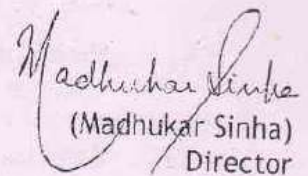 Madhukar Sinha
(Madhukar Sinha)
Director